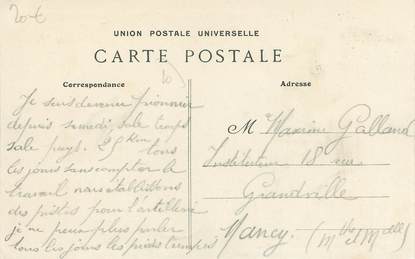 20 €
UNION POSTALE UNIVERSELLE
CARTE POSTALE
Correspondance
Adresse
Je suis devenu pionnier
depuis samedi, sale temps
sale pays. 25 Km tous
les jours sans compter le
travail nous établissons
des pistes pour l'artillerie
je ne peux plus parler
tous les jours les pieds trempés
M Maxime Galland
Instituteur 18 rue
Grandville
Nancy.
(Mthe et Mselle)